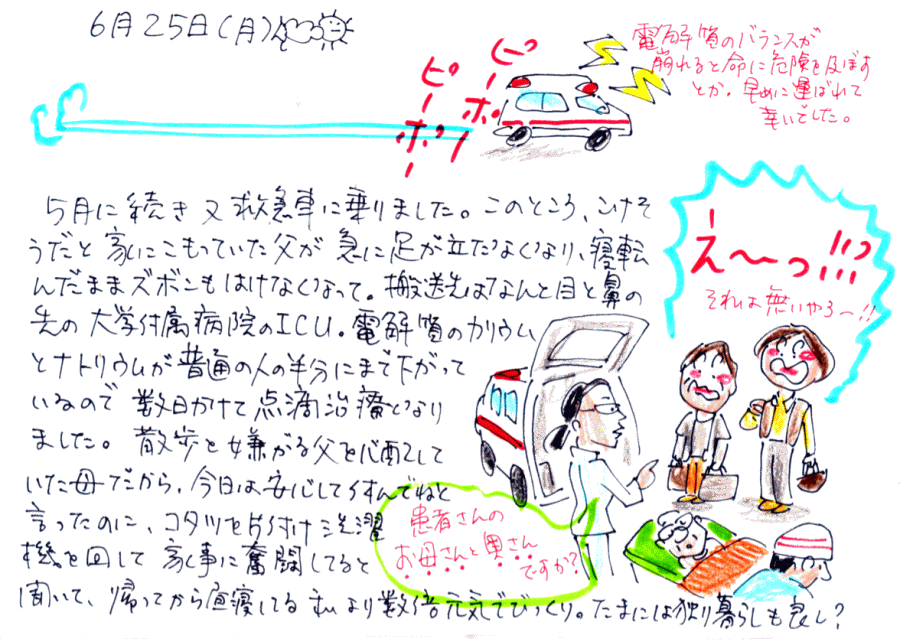 6月25日(月)
電解質のバランスが
崩れると命に危険を及ぼす
とか。早めに運ばれて
幸いでした。
ピーポー
ピーポー
5月に続き又救急車に乗りました。このところ、しけそ
うだと家にこもっていた父が急に足が立たなくなり、寝転
んだままズボンもはけなくなって。搬送先はなんと目と鼻の
先の大学付属病院のICU。電解質のカリウム
とナトリウムが普通の人の半分にまで下がって
いるので数日かけて点滴治療となり
ました。散歩を嫌がる父を心配して
いた母だから、今日は安心してやすんでねと
言ったのに、コタツを片付け洗濯
機を回して家事に奮闘してると
聞いて、帰ってから昼寝してる私より数倍元気でびっくり。たまには独り暮らしも良し?
え〜っ!!!
それは無いやろ〜!!
患者さんの
お母さんと奥さん
ですか?